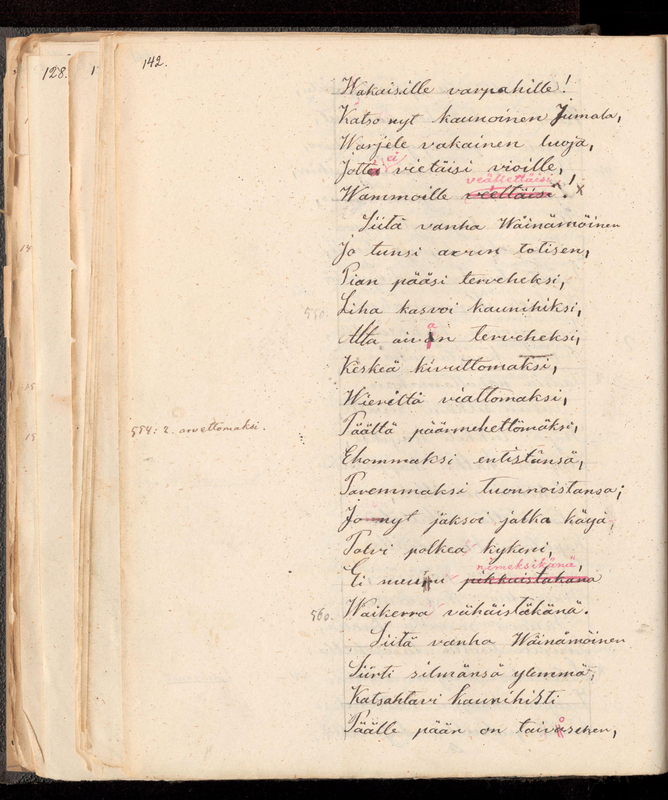 128.
142.
Wakaisille varpahille!
Katso nyt kaunoinen Jumala,
Warjele vakainen luoja,
Jottei vietäisi vioille,
ä
veällettäisi
Wammoille veellaisi! x
Siitä vanha Wäinämöinen
Jo tunsi avun totisen,
Pian pääsi terveheksi,
550. Liha kasvoi kaunihiksi,
a
Alta aivan terveheksi,
Keskeä kivuttomaksi,
Wieriltä viattomaksi,
554: 2. arvettomaksi.
Päältä päärmehettömäksi,
Ehommaksi entistänsä,
Paremmaksi tuonnoistansa;
Jo nyt jaksoi jalka käyä,
Polvi polkea kykeni,
nimeksikänä,
Ei muinu pikkuistakana
560. Waikerra vähäistäkänä.
Siitä vanha Wäinämöinen
Siirti silmänsä ylemmä,
Katsahtavi kaunihisti
Päälle pään on taivosehen,
14
15
15